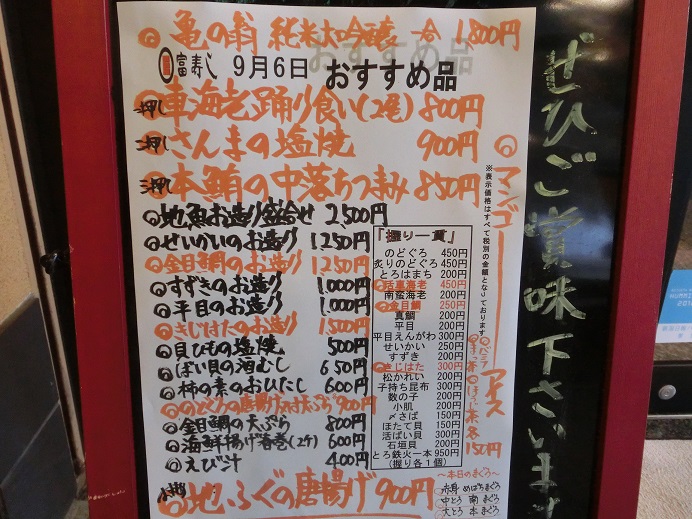 ◎亀の翁 純米大吟醸 一合 1,800円
富寿し 9月6日 おすすめ品
押し 車海老踊り食い(2尾) 800円
押し さんまの塩焼 900円
押し 本鮪の中落ちつまみ 850円
◎地魚お造り盛合せ 2,500円
◎せいかいのお造り 1,250円
◎金目鯛のお造り 1,250円
◎すずきのお造り 1,000円
◎平目のお造り 1,000円
◎きじはたのお造り 1,500円
◎貝ひもの塩焼 500円
◎ばい貝の酒むし 650円
◎柿の素のおひたし 600円
◎のどぐろの唐揚げ 又は天ぷら 900円
◎金目鯛の天ぷら 800円
◎海鮮揚げ春巻(2ケ) 600円
◎えび汁 400円
地ふぐの唐揚げ 900円
「握り一貫」
のどぐろ 450円
炙りのどぐろ 450円
とろはまち 200円
◎活真海老 450円
南蛮海老 200円
◎金目鯛 250円
真鯛 200円
平目 200円
平目えんがわ 300円
せいかい 250円
すずき 200円
◎きじはた 300円
松かれい 200円
子持ち昆布 300円
数の子 200円
小肌 200円
〆さば 150円
ほたて貝 150円
活ばい貝 300円
石垣貝 200円
とろ鉄火一本 950円
(握り各1個)
※表示価格はすべて税別の金額となっております
◎マンゴーアイス
◎バニラ
◎まっ茶
◎ほうじ茶
各150円
～本日のまぐろ～
赤身 めばちまぐろ
中とろ 南まぐろ
大とろ 本まぐろ
ぜひご賞味下さいませ